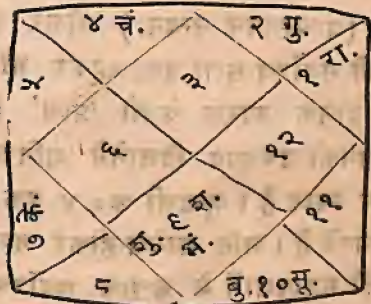 ४ चं. २ गु.
५ ३ १ रा.
६ १२
के. ७ शु. ९ श. मं. ११
८ बु.१०सू.